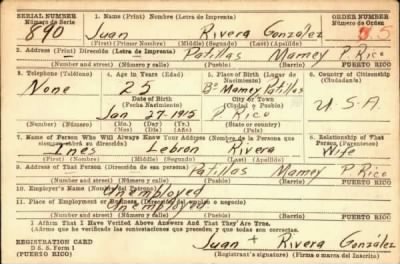 SERIAL NUMBER 1. Name (Print) Nombre (Letra de Imprenta) ORDER NUMBER
Número de Serie Número de Orden
890 Juan Rivera González 5
(First) (Primer Nombre) (Middle) (Segundo) (Last) (Apellido)
2. Address (Print) Dirección (Letra de Imprenta) Patillas Mamey P. Rico
(Number and street) (Número y calle) (Town) (Pueblo) (Barrio) PUERTO RICO
3. Telephone (Teléfono) 4. Age in Years (Edad) 5. Place of Birth (Lugar de Nacimiento) 6. Country of Citizenship (Ciudadanía)
None 25 Bo Mamey Patillas
Date of Birth City or Town
(Fecha Nacimiento) (Ciudad o Pueblo)
Jan 27-1915 P Rico U.S.A
(Number) (Número) (Mo.) (Day) (Yr.) (State or country)
(Mes) (Día) (Año) (Estado o país)
7. Name of Person Who Will Always Know Your Address (Nombre de la Persona que siempre sabrá su dirección) 8. Relationship of That Person (Parentesco)
Ines Lebron Rivera Wife
(First) (Primer Nombre) (Middle) (Segundo) (Last) (Apellido)
9. Address of That Person (Dirección de esa persona) Patillas Mamey P. Rico
(Number and street) (Número y calle) (Town) (Pueblo) (Barrio) PUERTO RICO
10. Employer's Name (Nombre del Patrono) Unemployed
11. Place of Employment or Business (Dirección del empleo o negocio)
Unemployed
(Number and street) (Número y calle) (Town) (Pueblo) (Barrio) PUERTO RICO
I Affirm That I Have Verified Above Answers And That They Are True.
(Afirmo que he verificado las contestaciones que preceden y que todas son correctas.)
REGISTRATION CARD
D. S. S. Form 1 Juan + Rivera González
(PUERTO RICO) (Registrant's signature) (Firma o marca del inscrito)